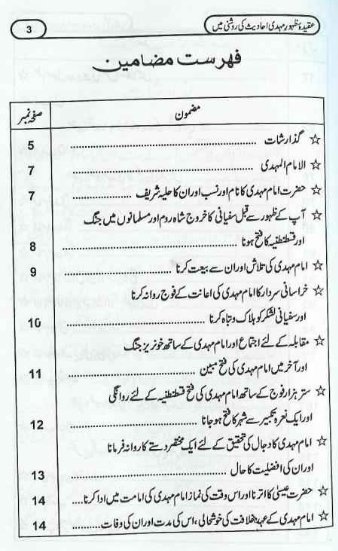 عقیدۂ ظہورِ مہدی احادیث کی روشنی میں 3
فہرست مضامین
مضمون صفحہ نمبر
☆ گذارشات ........................ 5
☆ الامام المہدی ........................ 7
☆ حضرت امام مہدی کا نام اور نسب اور ان کا حلیہ شریف ........................ 7
☆ آپ کے ظہور سے قبل سفیانی کا خروج شاہ روم اور مسلمانوں میں جنگ
اور قسطنطنیہ کا فتح ہونا ........................ 8
☆ امام مہدی کی تلاش اور ان سے بیعت کرنا ........................ 9
☆ خراسانی سردار کا امام مہدی کی اعانت کے فوج روانہ کرنا
اور سفیانی لشکر کو ہلاک و تباہ کرنا ........................ 10
☆ مقابلہ کے لئے اجتماع اور امام مہدی کے ساتھ خونریز جنگ
اور آخر میں امام مہدی کی فتح مبین ........................ 11
☆ ستر ہزار فوج کے ساتھ امام مہدی کی فتح قسطنطنیہ کے لئے روانگی
اور ایک نعرہ تکبیر سے شہر کا فتح ہو جانا ........................ 12
☆ امام مہدی کا دجال کی تحقیق کے لئے ایک مختصر دستے کا روانہ فرمانا
اور ان کی افضلیت کا حال ........................ 13
☆ حضرت عیسیٰ کا اترنا اور اس وقت کی نماز امام مہدی کی امامت میں ادا کرنا .... 14
☆ امام مہدی کے عہد خلافت کی خوشحالی، اس کی مدت اور ان کی وفات ........ 14